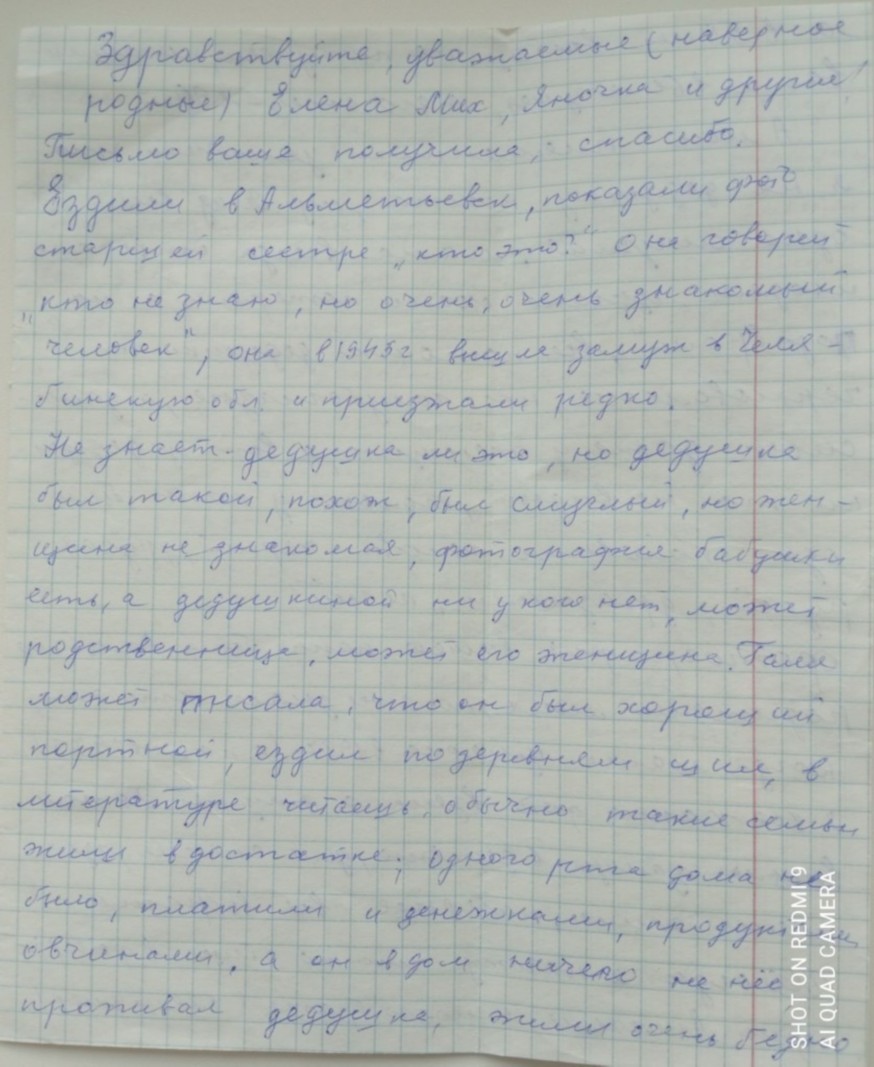 Здравствуйте, уважаемые (наверное
родные) Елена Мих, Яночка и другие!
Письмо ваше получила, спасибо.
Ездили в Альметьевск, показали фото
старшей сестре „кто это?“ Она говорит
„кто не знаю, но очень, очень знакомый
человек“, она в 1945г вышла замуж в Челя-
бинскую обл. и приезжали редко.
Не знает дедушка ли это, но дедушка
был такой, похож, был смуглый, но жен-
щина не знакомая, фотография бабушки
есть, а дедушкиной ни у кого нет, может
родственница, может его женщина. Галя
может писала, что он был хороший
портной, ездил по деревням шил, в
литературе читаешь, обычно такие семьи
жили в достатке, одного рта дома не
было, платили и денежками, продуктами
овчинами, а он в дом ничего не нёс
проживал дедушка, жили очень бедно
SHOT ON REDMI 9
AI QUAD CAMERA